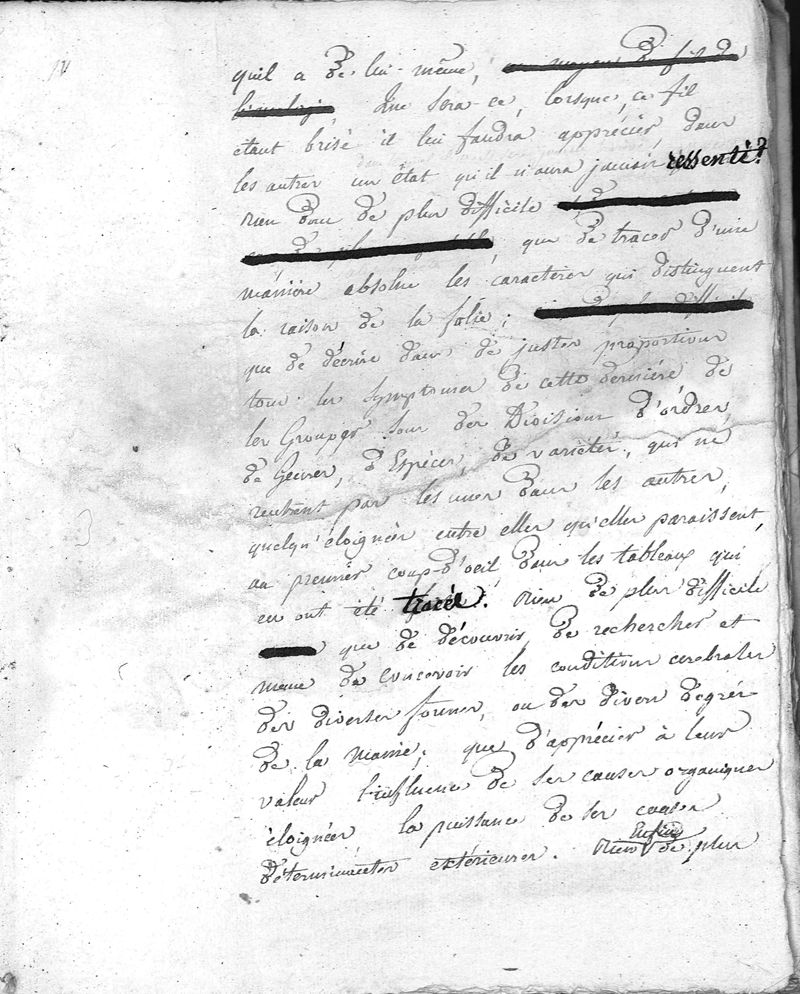 qu'il a de lui-même,
Que sera-ce, lorsque, ce fil
étant brisé il lui faudra apprécier, dans
les autres un état qu'il n'aura jamais ressenti?
rien donc de plus difficile
que de tracer d'une
manière absolue les caractères qui distinguent
la raison de la folie;
que de décrire dans de justes proportions
tous les symptomes de cette dernière de
les Grouper sous des Divisions d'ordres,
de Genres, d'Espèces, de variétés, qui ne
rentrent pas les unes dans les autres,
quelqu'éloignées entre elles qu'elles paraissent,
au premier coup-d'oeil dans les tableaux qui
en ont été tracés. Rien de plus difficile
que de découvrir, de rechercher et
meme de concevoir les conditions cerebrales
des diverses formes, ou des divers degrés
de la manie; que d'apprécier à leur
valeur l'influence de ses causes organiques
éloignées, la puissance de ses causes
déterminantes extérieures. Enfin
Rien de plus